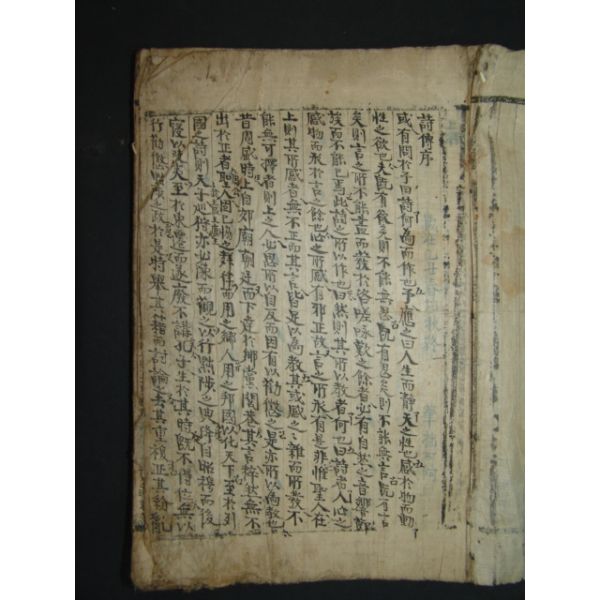 詩傳序
或有問於予曰詩何爲而作也予應之曰人生而靜天之性也感於物而動
性之欲也夫旣有欲矣則不能無思旣有思矣則不能無言旣有言
矣則言之所不能盡而發於咨嗟咏歎之餘者必有自然之音響節
族而不能已焉此詩之所以作也曰然則其所以敎者何也曰詩者人心之
感物而形於言之餘也心之所感有邪正故言之所形有是非惟聖人在
上則其所感者無不正而其言皆足以爲敎其或感之之雜而所發不
能無可擇者則上之人必思所以自反而因有以勸懲之是亦所以爲敎也
昔周盛時上自郊廟朝廷而下達於鄕黨閭巷其言粹然無不
出於正者聖人固已協之聲律而用之鄕人用之邦國以化天下至於列
國之詩則天子巡狩亦必陳而觀之以行黜陟之典降自昭穆而後
寖以陵夷至於東遷而遂廢不講孔子生於其時旣不得位無以
行勸懲黜陟之政於是特擧其籍而討論之去其重複正其紛亂